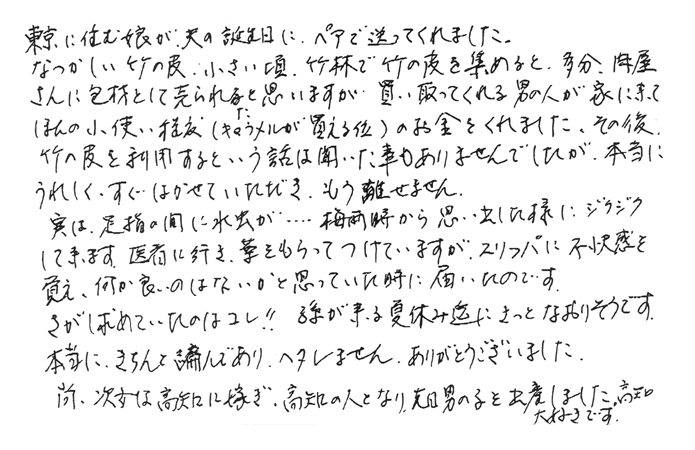 東京に住む娘が、夫の誕生日に、ペアで送ってくれました。
なつかしい竹の皮、小さい頃、竹林で竹の皮を集めると、多分、肉屋
さんに包材として売られると思いますが 買い取ってくれる男の人が家に来て
ほんの小使い程度(キャラメルが買える位)のお金をくれました、その後、
竹の皮を利用するという話は聞いた事もありませんでしたが、本当に
うれしく、すぐはかせていただき、もう離せません。
実は、足指の間に水虫が‥‥ 梅雨時から思い出した様に ジクジク
して来ます、医者に行き、薬をもらってつけていますが、スリッパに不快感を
覚え、何か良いのはないかと思っていた時に届いたのです。
さがし求めていたのはコレ!! 孫が来る夏休み迄にきっとなおりそうです。
本当に、きちんと編んであり、ヘタレません、ありがとうございました。
尚、次女は高知に嫁ぎ、高知の人となり、先日男の子を出産しました、高知
大好きです。